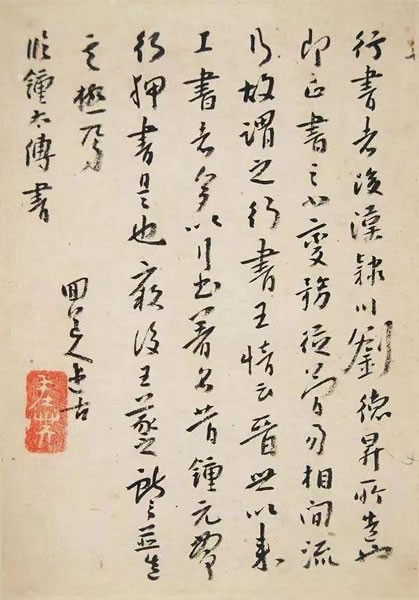 行書者後漢隸川劉德昇所造也
即正書之小變務從簡易相間流
行故謂之行書王愔云晉世以來
工書者多以行書著名昔鍾元常
行押書是也厥後王羲之獻之並造
其極焉
臨鍾太傅書
回道人